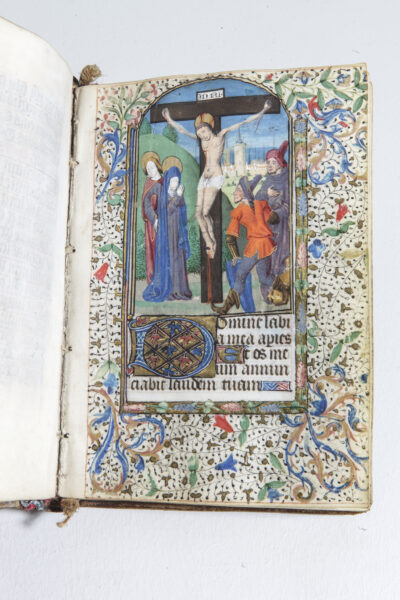 INRI
Domine labi
a mea apies
Et os me
um annun
ciabit laudem tuam